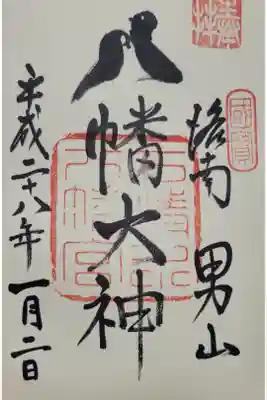 奉拝
国宝
洛南 男山
八幡大神
石清水八幡宮
平成二十八年 一月二日